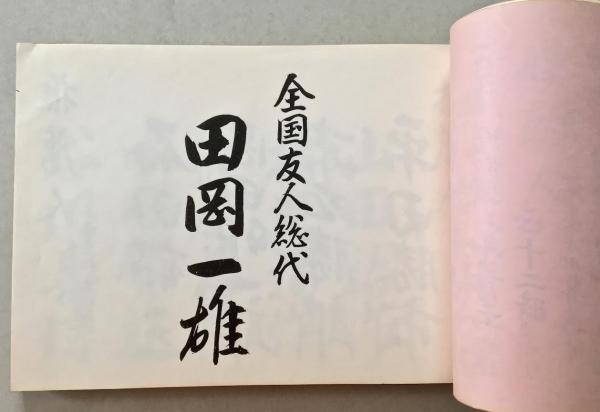 全国友人総代
田岡一雄